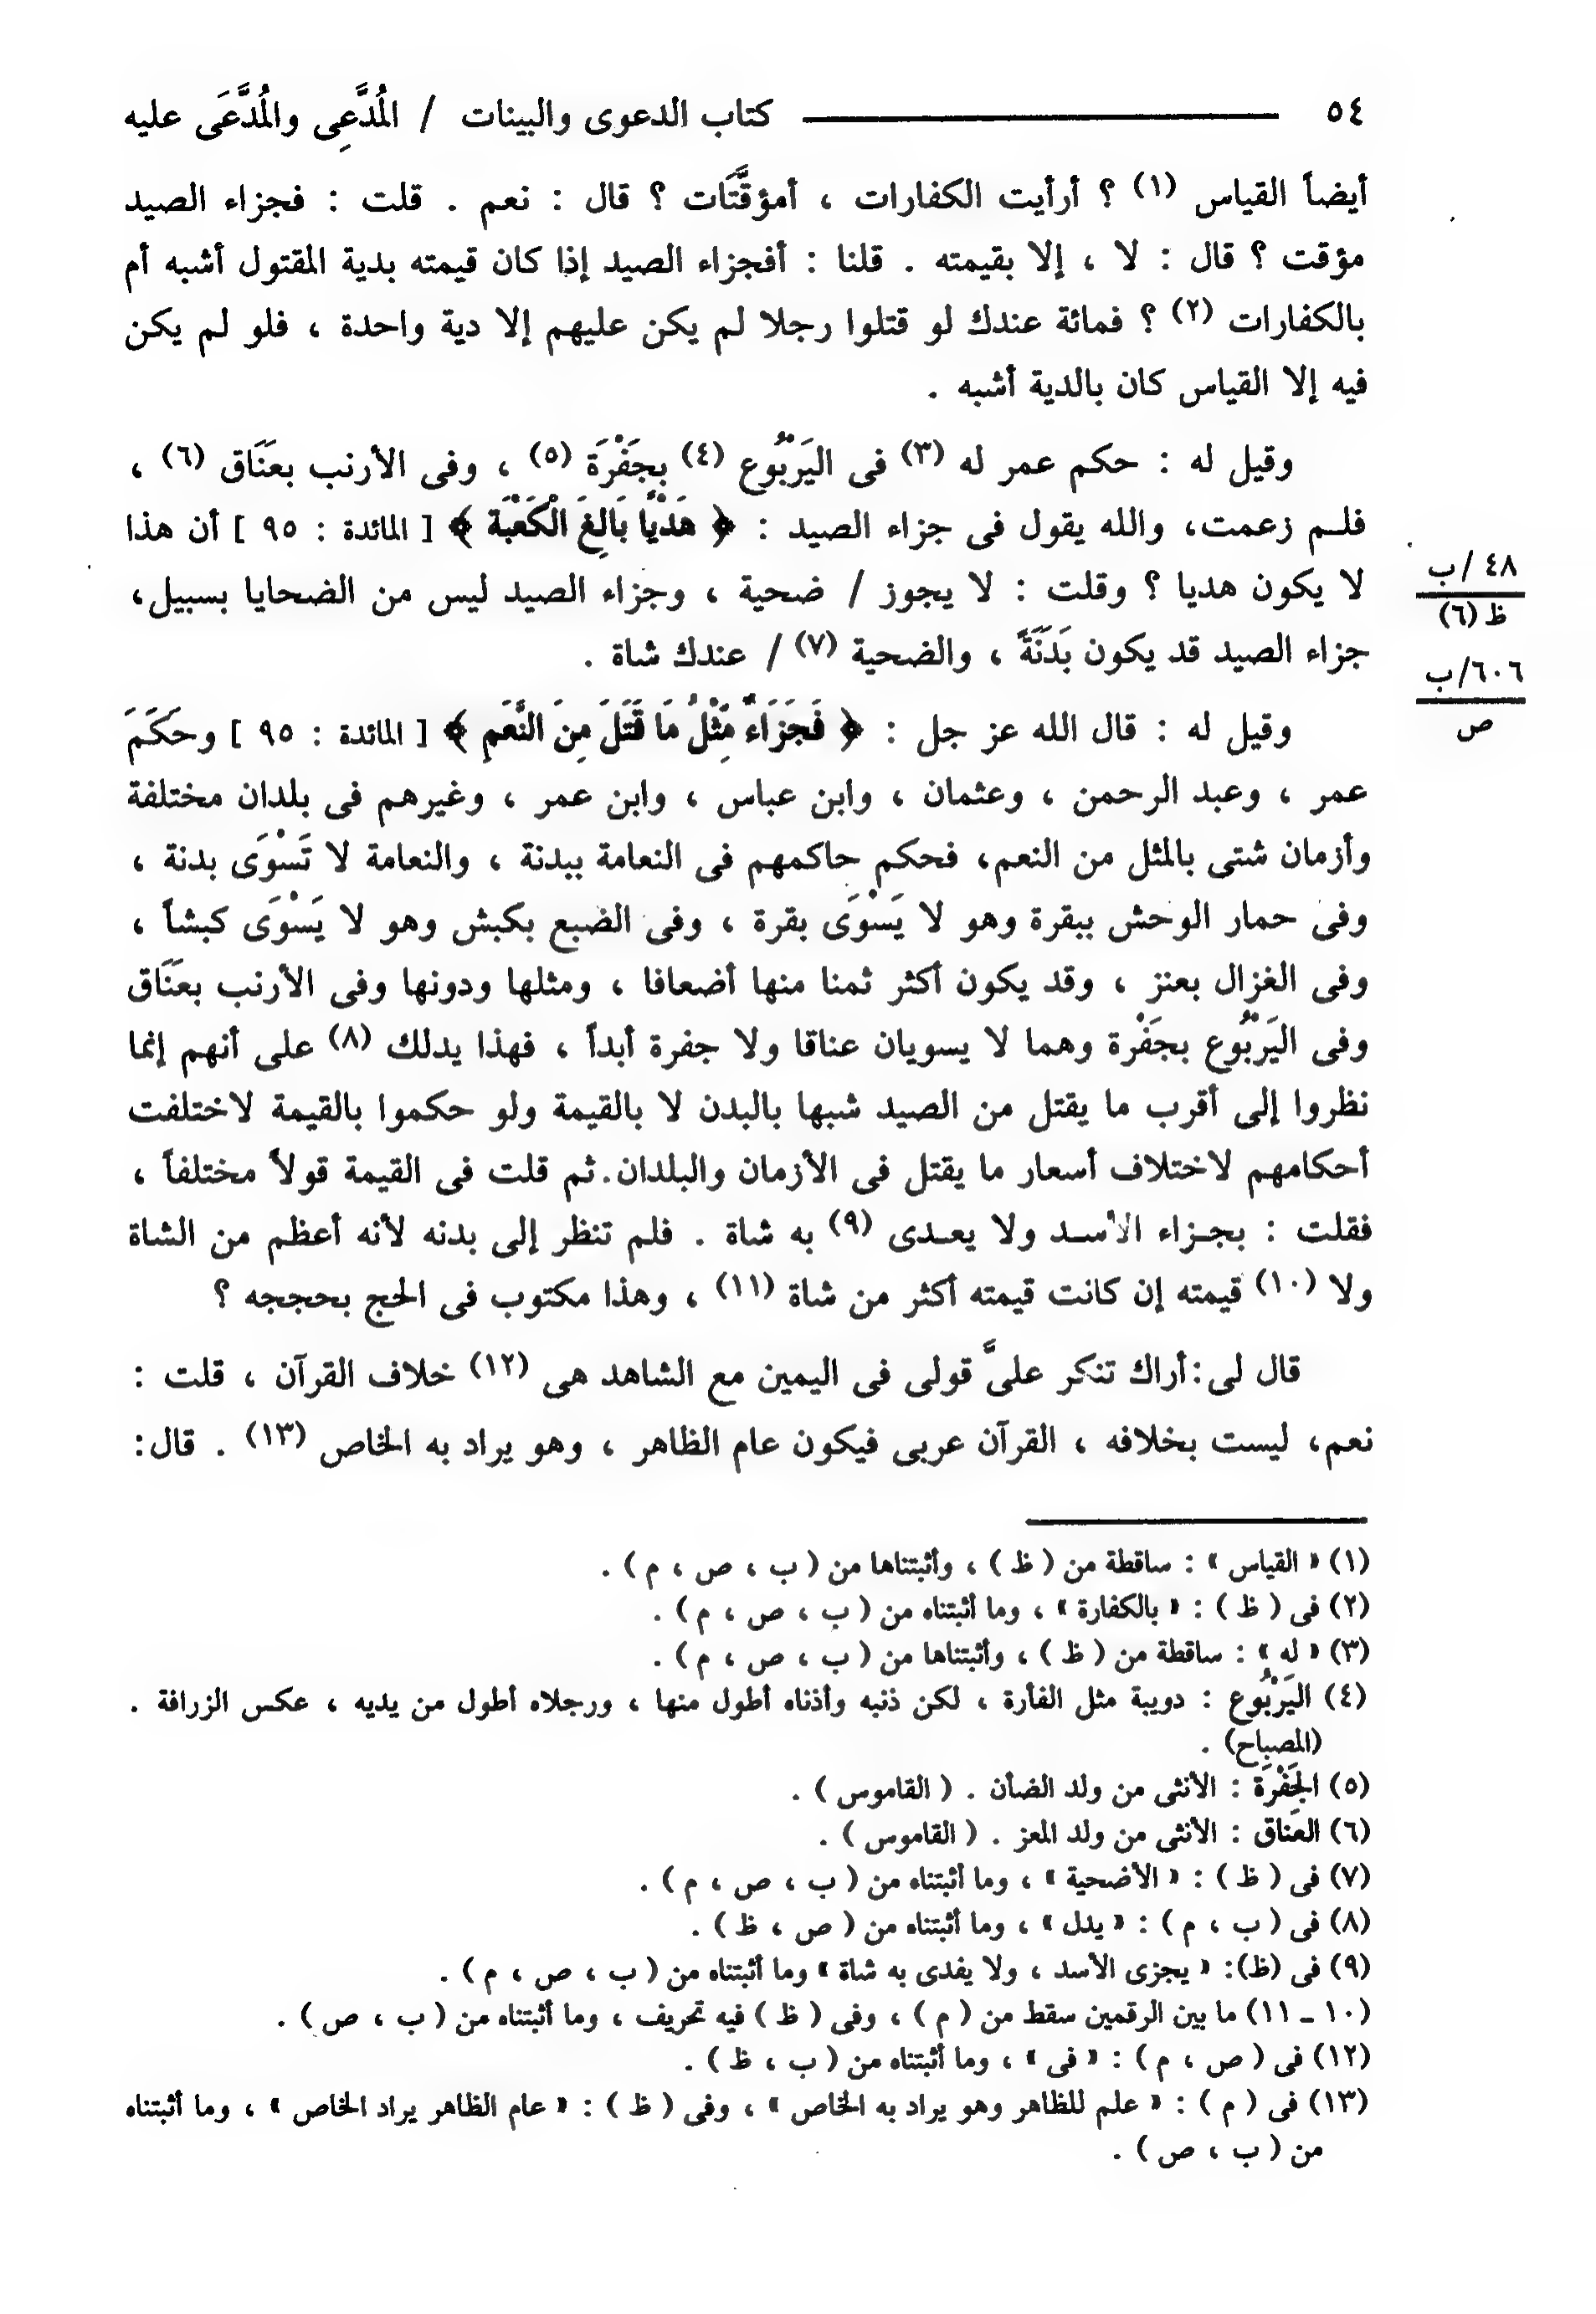 ٥٤ كتاب الدعوى والبينات / المُدَّعِى والمُدَّعَى عليه
أيضاً القياس (١) ؟ أرأيت الكفارات ، أمؤقَّتَات ؟ قال : نعم . قلت : فجزاء الصيد
مؤقت ؟ قال : لا ، إلا بقيمته . قلنا : أفجزاء الصيد إذا كان قيمته بدية المقتول أشبه أم
بالكفارات (٢) ؟ فمائة عندك لو قتلوا رجلا لم يكن عليهم إلا دية واحدة ، فلو لم يكن
فيه إلا القياس كان بالدية أشبه .
وقيل له : حكم عمر له (٣) فى اليَرْبُوع (٤) بجَفْرَة (٥) ، وفى الأرنب بعَنَاق (٦) ،
فلـم زعمت، والله يقول فى جزاء الصيد : ﴿ هَدْيًا بَالِغَ الْكَعْبَة ﴾ [ المائدة : ٩٥ ] أن هذا
لا يكون هديا ؟ وقلت : لا يجوز / ضحية ، وجزاء الصيد ليس من الضحايا بسبيل،
٤٨ /ب
ظ (٦)
جزاء الصيد قد يكون بَدَنَةً ، والضحية (٧) / عندك شاة .
٦٠٦/ب
ص
وقيل له : قال الله عز جل : ﴿ فَجَزَاءٌ مِّثْلُ مَا قَتَلَ مِنَ النَّعَمِ ﴾ [ المائدة : ٩٥ ] وحَكَمَ
عمر ، وعبد الرحمن ، وعثمان ، وابن عباس ، وابن عمر ، وغيرهم فى بلدان مختلفة
وأزمان شتى بالمثل من النعم، فحكم حاكمهم فى النعامة ببدنة ، والنعامة لا تَسْوَى بدنة ،
وفى حمار الوحش ببقرة وهو لا يَسْوَى بقرة ، وفى الضبع بكبش وهو لا يَسْوَى كبشاً ،
وفى الغزال بعنز ، وقد يكون أكثر ثمنا منها أضعافا ، ومثلها ودونها وفى الأرنب بعَنَاق
وفى اليَرْبُوع بجَفْرة وهما لا يسويان عناقا ولا جفرة أبداً ، فهذا يدلك (٨) على أنهم إنما
نظروا إلى أقرب ما يقتل من الصيد شبها بالبدن لا بالقيمة ولو حكموا بالقيمة لاختلفت
أحكامهم لاختلاف أسعار ما يقتل فى الأزمان والبلدان.ثم قلت فى القيمة قولاً مختلفاً ،
فقلت : بجـزاء الأسـد ولا يعـدى (٩) به شاة . فلم تنظر إلى بدنه لأنه أعظم من الشاة
ولا (١٠) قيمته إن كانت قيمته أكثر من شاة (١١) ، وهذا مكتوب فى الحج بحججه ؟
قال لى:أراك تنكر علىَّ قولى فى اليمين مع الشاهد هى (١٢) خلاف القرآن ، قلت :
نعم، ليست بخلافه ، القرآن عربى فيكون عام الظاهر ، وهو يراد به الخاص (١٣) . قال:
(١) « القياس » : ساقطة من ( ظ ) ، وأثبتناها من ( ب ، ص ، م ) .
(٢) فى ( ظ ) : « بالكفارة » ، وما أثبتناه من ( ب ، ص ، م ) .
(٣) « له » : ساقطة من ( ظ ) ، وأثبتناها من ( ب ، ص ، م ) .
(٤) اليَرْبُوع : دويبة مثل الفأرة ، لكن ذنبه وأذناه أطول منها ، ورجلاه أطول من يديه ، عكس الزرافة .
(المصباح) .
(٥) الجَفْرَة : الأنثى من ولد الضأن . ( القاموس ) .
(٦) العَناق : الأنثى من ولد المعز . ( القاموس ) .
(٧) فى ( ظ ) : « الأضحية » ، وما أثبتناه من ( ب ، ص ، م ) .
(٨) فى ( ب ، م ) : « يدل » ، وما أثبتناه من ( ص ، ظ ) .
(٩) فى (ظ): « يجزى الأسد ، ولا يفدى به شاة » وما أثبتناه من ( ب ، ص ، م ) .
(١٠ ـ ١١) ما بين الرقمين سقط من ( م ) ، وفى ( ظ ) فيه تحريف ، وما أثبتناه من ( ب ، ص ) .
(١٢) فى ( ص ، م ) : « فى » ، وما أثبتناه من ( ب ، ظ ) .
(١٣) فى ( م ) : « علم للظاهر وهو يراد به الخاص » ، وفى ( ظ ) : « عام الظاهر يراد الخاص » ، وما أثبتناه
من ( ب ، ص ) .